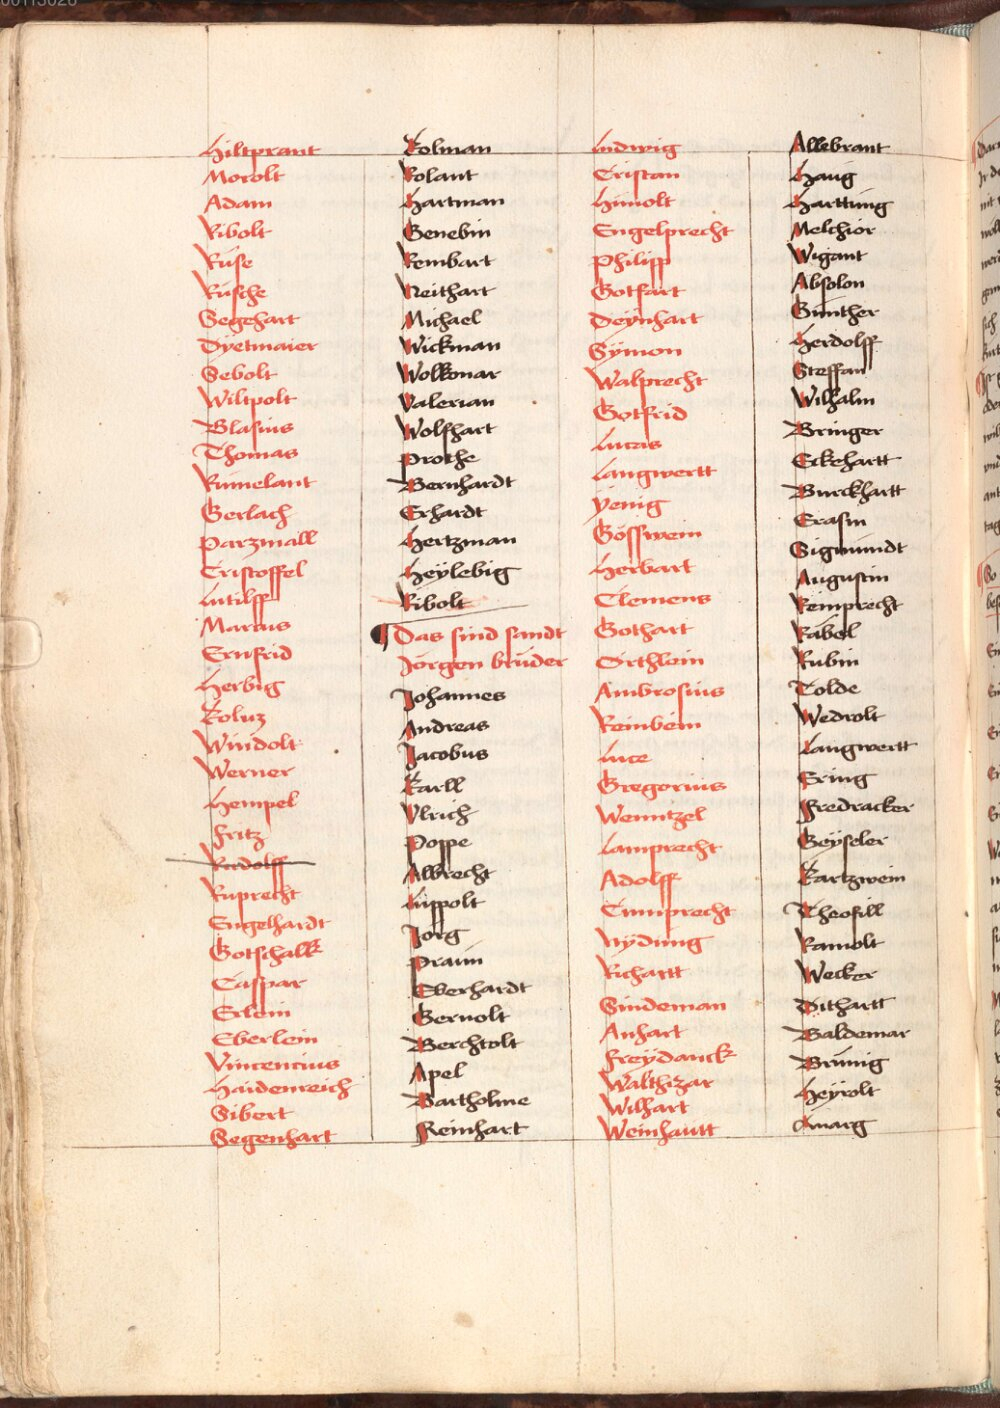 Hiltprant
Morolt
Adam
Ribolt
Ruse
Rusche
Segehart
Dyetmaier
Sebolt
Wiltpolt
Blasius
Thomas
Rumelant
Gerlach
Parzmall
Cristoffel
Lutilff
Marcus
Ernfrid
Herbig
Windolt
Werner
Hempel
Fritz
Rudolff
Ruprecht
Engelhardt
Gotschalk
Caspar
Erlein
Eberlein
Vincencius
Haidenreich
Sibert
Segenhart
Kolman
Rolant
Hartman
Genebin
Rembart
Neithart
Michael
Wickman
Wolkmar
Valerian
Wolfhart
Prothe
Bernhardt
Erhardt
Hertzman
Heylebig
Ribolt
Das sind sandt
Jörgen bruder
Johannes
Andreas
Jacobus
Karll
Vlrich
Poppe
Albrecht
Luppolt
Jorg
Praun
Eberhardt
Gernolt
Berchtolt
Apel
Bartholme
Reinhart
Ludwig
Tristan
Hunolt
Engelprecht
Philipp
Gotfart
Deynhart
Symon
Walprecht
Gotfrid
Lucas
Langwertt
Yenig
Gösswein
Herbart
Clemens
Gothart
Örthlein
Ambrosius
Reinbein
Luce
Gregorius
Wenntzel
Lamprecht
Adolff
Cunprecht
Nydung
Richartt
Sindeman
Anhart
Freydanck
Walthizar
Wilhart
Weinhautt
Allebrant
Haug
Harttung
Melchior
Wigant
Absolon
Gunther
Herdolff
Steffan
Wilhalm
Bringer
Eckehartt
Burckhartt
Erasm
Sigmundt
Augustin
Remprecht
Rabel
Rubin
Tolde
Wedrolt
Langwertt
Ering
Fredracker
Geyseler
Kartzwein
Theofill
Ramolt
Wecker
Dithartt
Baldemar
Brunig
Heyrolt